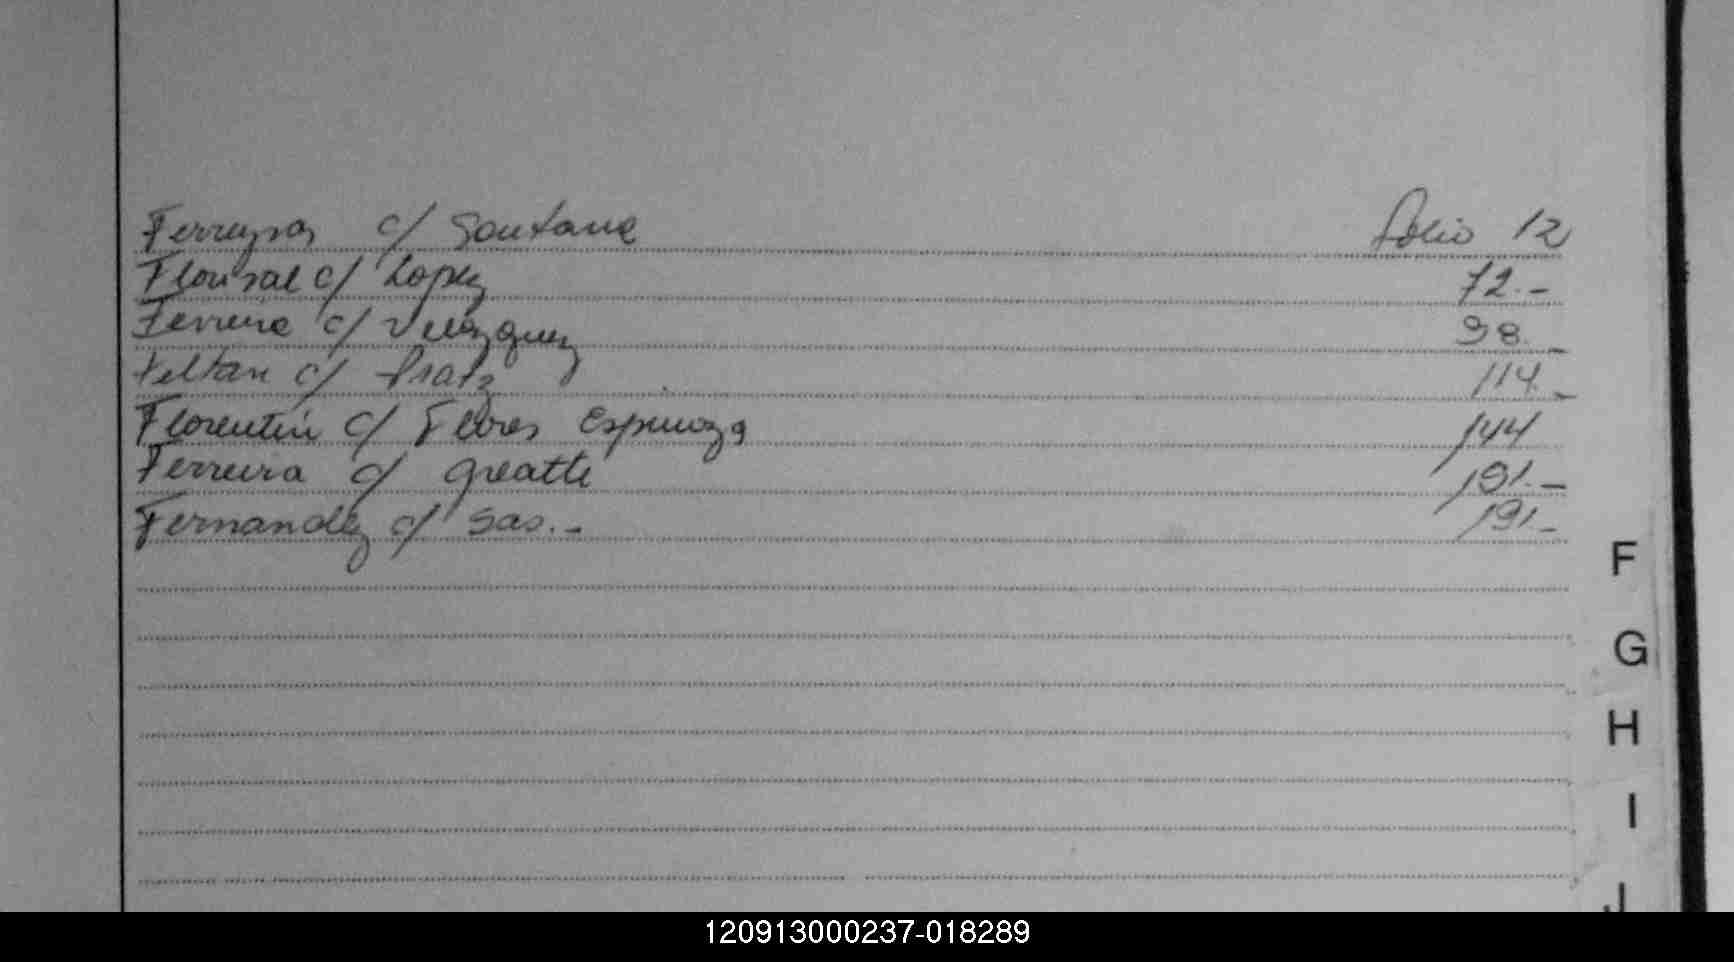 Ferreyra c/ Santana folio 12
c/ Lopez 72.-
Ferreira c/ Velazquez 98.-
Feltan c/ Pratz 114.-
Florentin c/ Flores Espinoza 144
Ferreira c/ Greatti 191.-
Fernandez c/ Sas.- 191.-
F
G
H
I
J
120913000237-018289